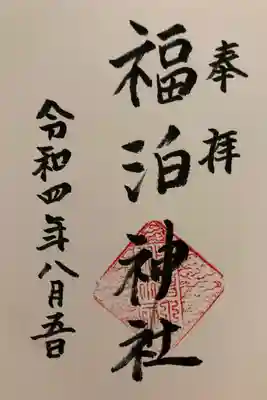 奉拝
福泊神社
令和四年八月吾日